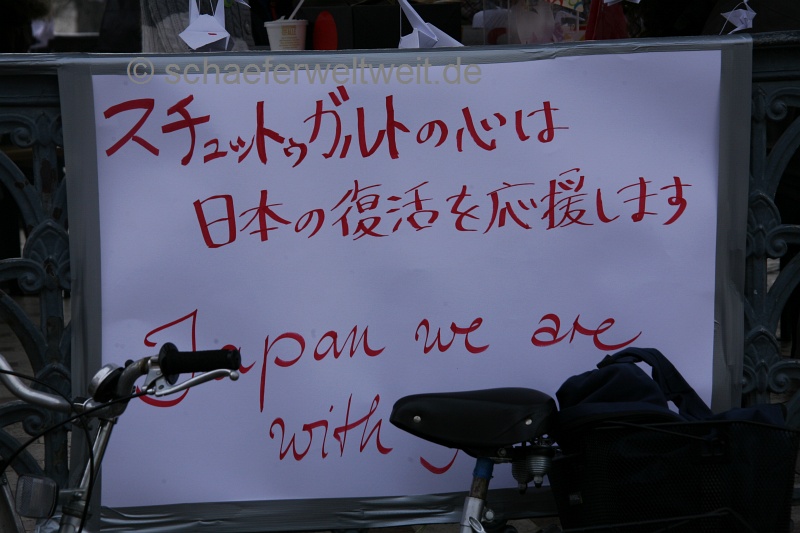 © schaeferweltweit.de
スチュットゥガルトの心は
日本の復活を応援します
Japan we are
with